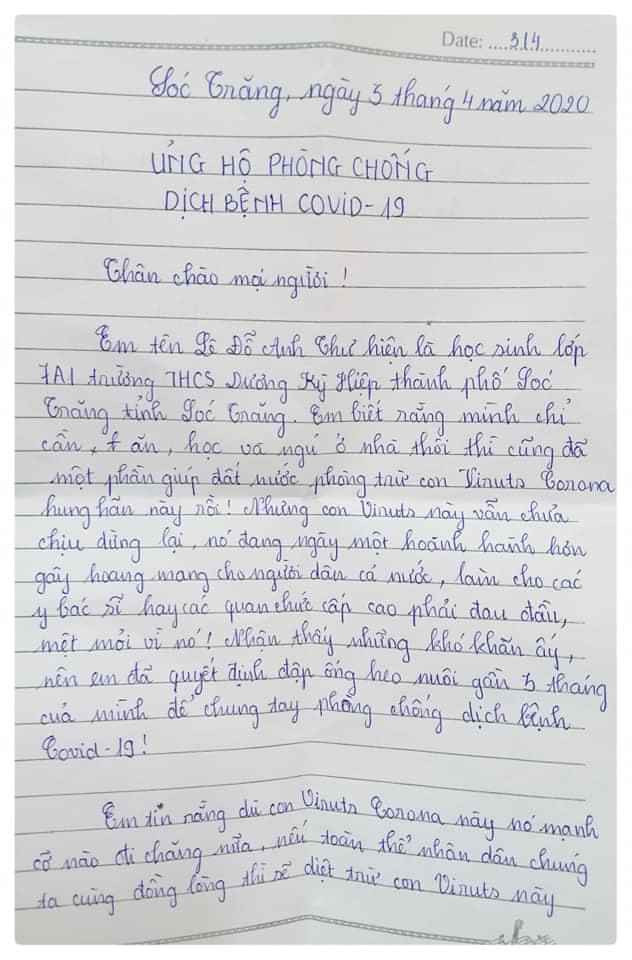 Date: ....3/4...........
Sóc Trăng, ngày 3 tháng 4 năm 2020
ỦNG HỘ PHÒNG CHỐNG
DỊCH BỆNH COViD-19
Thân chào mọi người !
Em tên Lê Đỗ Anh Thư hiện là học sinh lớp
7A1 trường THCS Dương Kỳ Hiệp thành phố Sóc
Trăng tỉnh Sóc Trăng. Em biết rằng mình chỉ
cần, ăn, học và ngủ ở nhà thôi thì cũng đã
một phần giúp đất nước phòng trừ con Viruts Corona
hung hãn này rồi ! Nhưng con Viruts này vẫn chưa
chịu dừng lại, nó đang ngày một hoành hành hơn
gây hoang mang cho người dân cả nước, làm cho các
y bác sĩ hay các quan chức cấp cao phải đau đầu,
mệt mỏi vì nó ! Nhận thấy những khó khăn ấy,
nên em đã quyết định đập ống heo nuôi gần 5 tháng
của mình để chung tay phòng chống dịch bệnh
Covid-19 !
Em tin rằng dù con Viruts Corona này nó mạnh
cỡ nào đi chăng nữa, nếu toàn thể nhân dân chúng
ta cùng đồng lòng thì sẽ diệt trừ con Viruts này